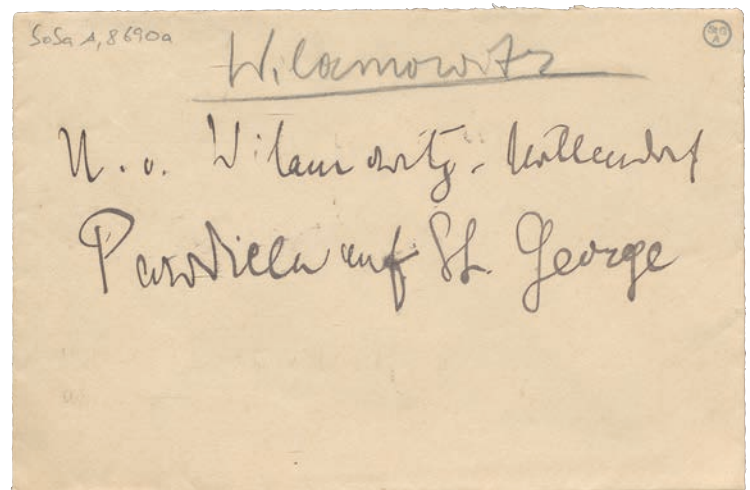 SoSa A, 8690a
StG A
Wilamowitz
U. v. Wilamowitz-Möllendorf
Parodieen auf St. George